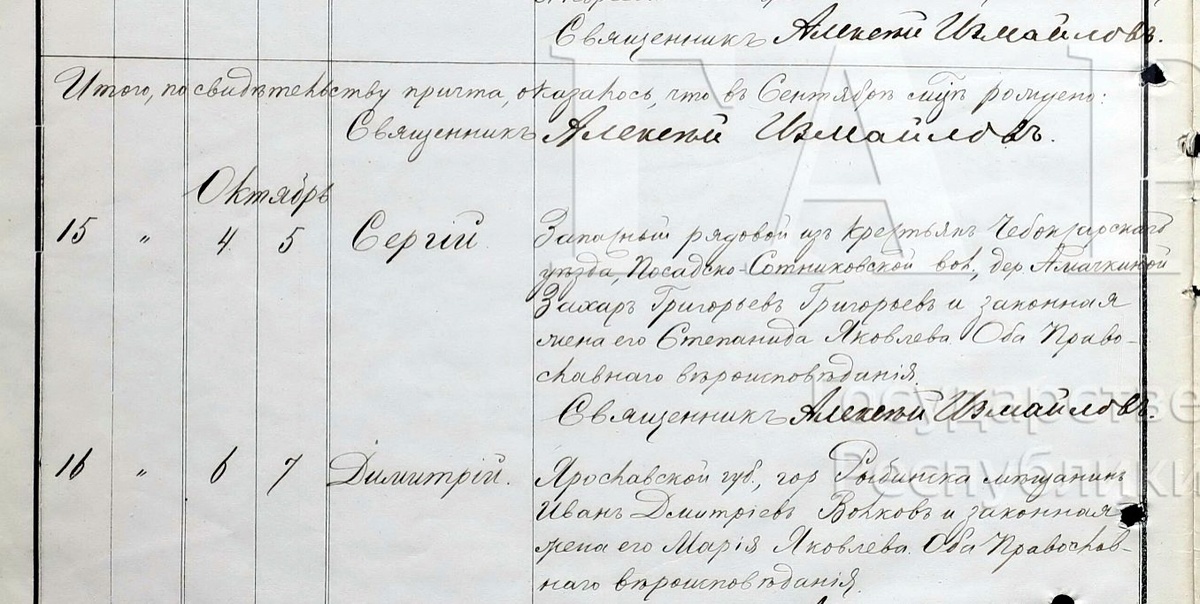 Священникъ Алексѣй Измайловъ.
Итого, по свидѣтельству причта, оказалось, что въ Сентябрѣ мцѣ рождено:
Священникъ Алексѣй Измайловъ.
Октябрь
15 " 4 5 Сергій. Запасный рядовой изъ крестьянъ Чебоксарскаго
уѣзда, Посадско-Сотниковской вол., дер. Амачкиной
Захаръ Григорьевъ Григорьевъ и законная
жена его Степанида Яковлева Оба Право-
славнаго вѣроисповѣданія.
Священникъ Алексѣй Измайловъ.
16 " 6 7 Димитрій. Ярославской губ., гор. Рыбинска мѣщанинъ
Иванъ Дмитріевъ Волковъ и законная
жена его Марія Яковлева. Оба Православ-
наго вѣроисповѣданія.
ГА
Государстве
Республики